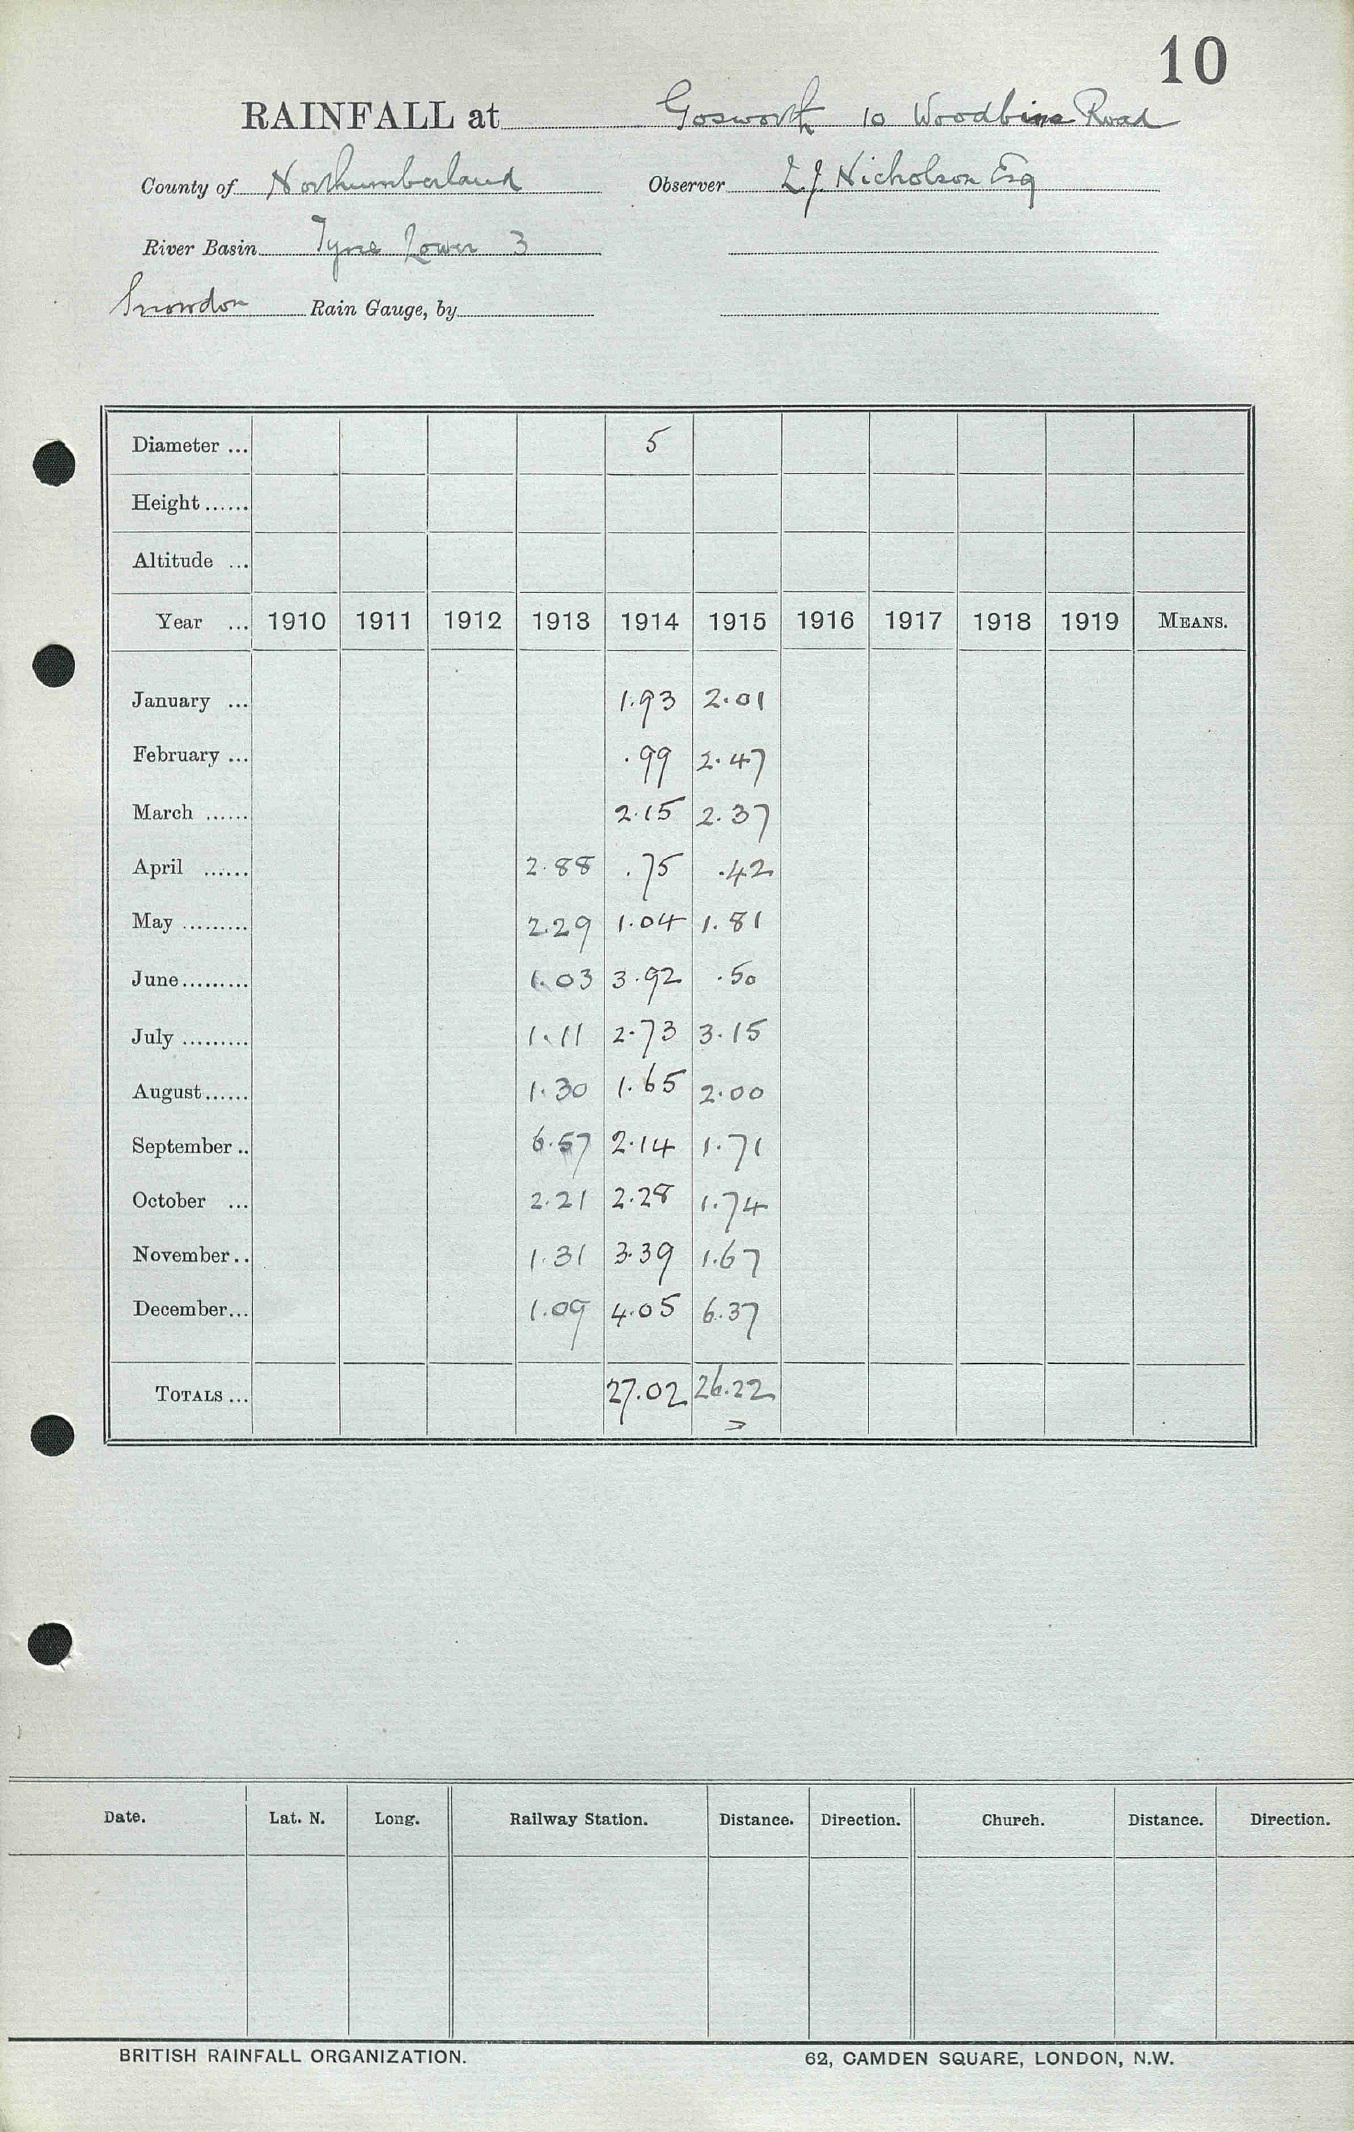 10
RAINFALL at Gosworth 10 Woodbine Road
County of Northumberland Observer L J Nicholson Esq
River Basin Tyne Lower 3
Snowdon Rain Gauge, by
Diameter ... 5
Height ......
Altitude ...
Year ... 1910 1911 1912 1913 1914 1915 1916 1917 1918 1919 MEANS.
January ... 1.93 2.01
February ... .99 2.47
March ...... 2.15 2.37
April ...... 2.88 .75 .42
May ......... 2.29 1.04 1.81
June ......... 1.03 3.92 .50
July ......... 1.11 2.73 3.15
August ...... 1.30 1.65 2.00
September .. 6.57 2.14 1.71
October ... 2.21 2.28 1.74
November .. 1.31 3.39 1.67
December ... 1.09 4.05 6.37
TOTALS ... 27.02 26.22
Date. Lat. N. Long. Railway Station. Distance. Direction. Church. Distance. Direction.
BRITISH RAINFALL ORGANIZATION. 62, CAMDEN SQUARE, LONDON, N.W.